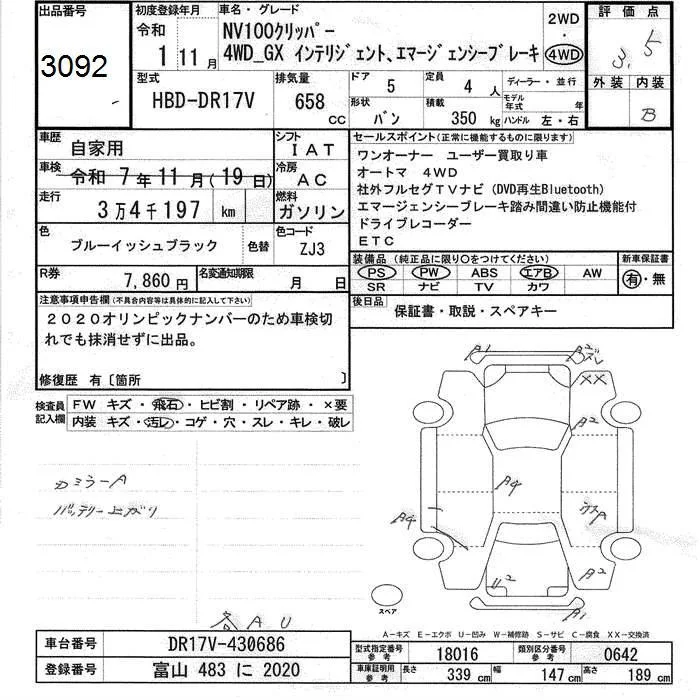 出品番号
3092
初度登録年月
令和
1 11月
車名・グレード
NV100クリッパー
4WD_GX インテリジェント、エマージェンシーブレーキ
2WD
・
4WD
評価点
3.5
外装 内装
B
型式
HBD-DR17V
排気量
658
CC
ドア
5
定員
4 人
形状
バン
積載
350 kg
ディーラー・並行
モデル年式 年
ハンドル 左・右
車歴
自家用
シフト
IAT
車検
令和 7年11月(19日)
冷房
AC
走行
3万4千197 km
燃料
ガソリン
色
ブルーイッシュブラック
色替
色コード
ZJ3
R券
7,860円
名変通知期限
月 日
セールスポイント(正常に機能するものに限ります)
ワンオーナー ユーザー買取り車
オートマ 4WD
社外フルセグTVナビ(DVD再生Bluetooth)
エマージェンシーブレーキ踏み間違い防止機能付
ドライブレコーダー
ETC
装備品(純正品に限り○をつけてください)
PS PW ABS エアB AW
SR ナビ TV カワ
新車保証書
有・無
後日品
保証書・取説・スペアキー
注意事項申告欄(不具合内容等は具体的に記入して下さい)
2020オリンピックナンバーのため車検切
れでも抹消せずに出品。
修復歴 有〔箇所 〕
検査員記入欄
FW キズ・飛石・ヒビ割・リペア跡・×要
内装 キズ・汚レ・コゲ・穴・スレ・キレ・破レ
ミラーA
バッテリー上がり
A1
A2
XX
A2
A4
A4
A2
U2
A1
スペア
A-キズ E-エクボ U-凹み W-補修跡 S-サビ C-腐食 XX-交換済
車台番号
DR17V-430686
登録番号
富山 483 に 2020
型式指定番号
参考
18016
類別区分番号
参考
0642
車車証明用
参考
長さ
339 cm
幅
147 cm
高さ
189 cm